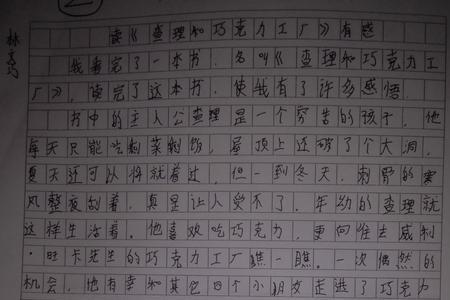 读《查理和巧克力工厂》有感
我看完了一本书，名叫《查理和巧克力工
厂》，读完了这本书，使我有了许多感悟。
书中的主人公查理是一个穷苦的孩子，他
每天只能吃剩菜剩饭，屋顶上还破了个大洞，
夏天还可以将就着过，但一到冬天，刺骨的寒
风整夜刮着，真是让人受不了。年幼的查理就
这样生活着。他喜欢吃巧克力，更向往去威利
·旺卡先生的巧克力工厂瞧一瞧。一次偶然的
机会，他有幸和其他四个小朋友走进了巧克力